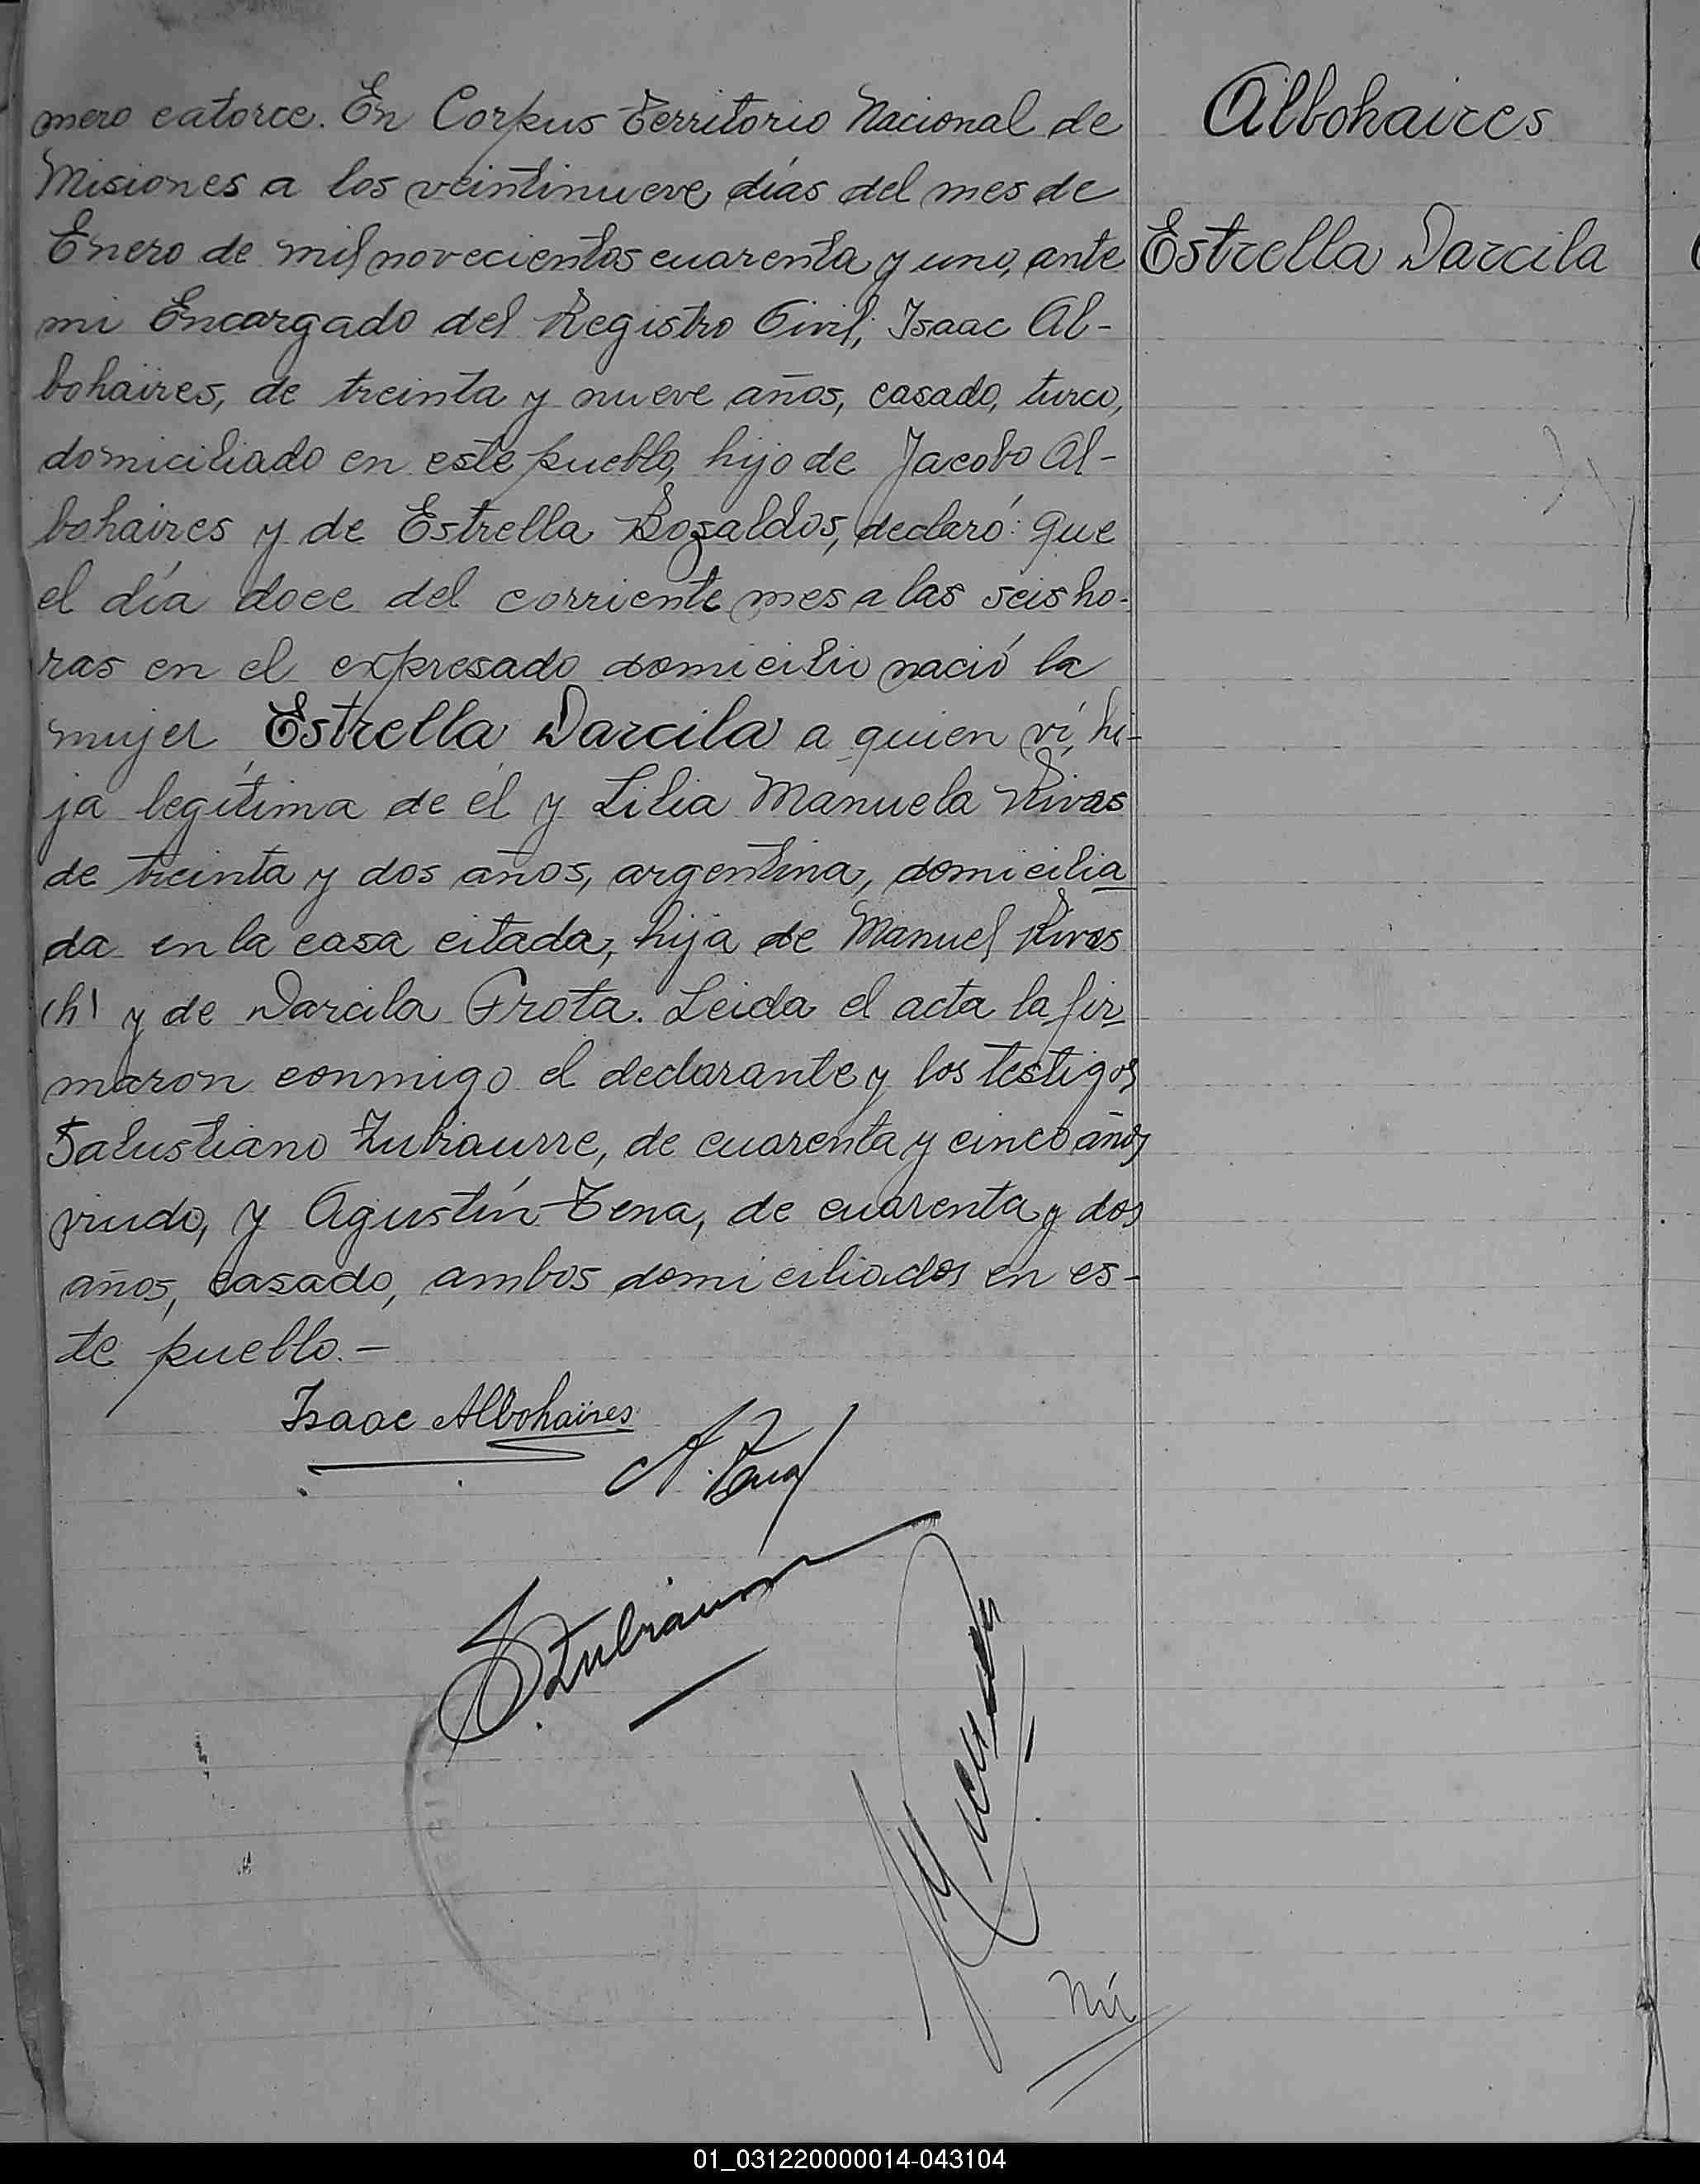 mero catorce. En Corpus Territorio Nacional de
Misiones a los veintinueve días del mes de
Enero de mil novecientos cuarenta y uno, ante
mi Encargado del Registro Civil, Isaac Al-
bohaires, de treinta y nueve años, casado, turco,
domiciliado en este pueblo, hijo de Jacobo Al-
bohaires y de Estrella Bozaldos, declaró: que
el día doce del corriente mes a las seis ho-
ras en el expresado domicilio nació la
mujer Estrella Darcila a quien ví, hi-
ja legítima de él y Lilia Manuela Rivas
de treinta y dos años, argentina, domicilia
da en la casa citada, hija de Manuel Rivas
(h) y de Darcila Frota. Leida el acta la fir
maron conmigo el declarante y los testigos
Salustiano Zubiaurre, de cuarenta y cinco años
viudo, y Agustín Tena, de cuarenta y dos
años, casado, ambos domiciliados en es-
te pueblo.-
Albohaires
Estrella Darcila
Isaac Albohaires
A. Tena
S. Zubiaurre
Nú
01_031220000014-043104